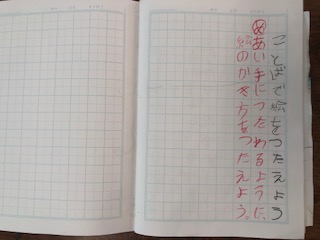 ことばで絵をつたえよう
めあい手につたわるように、
絵のかき方をつたえよう。